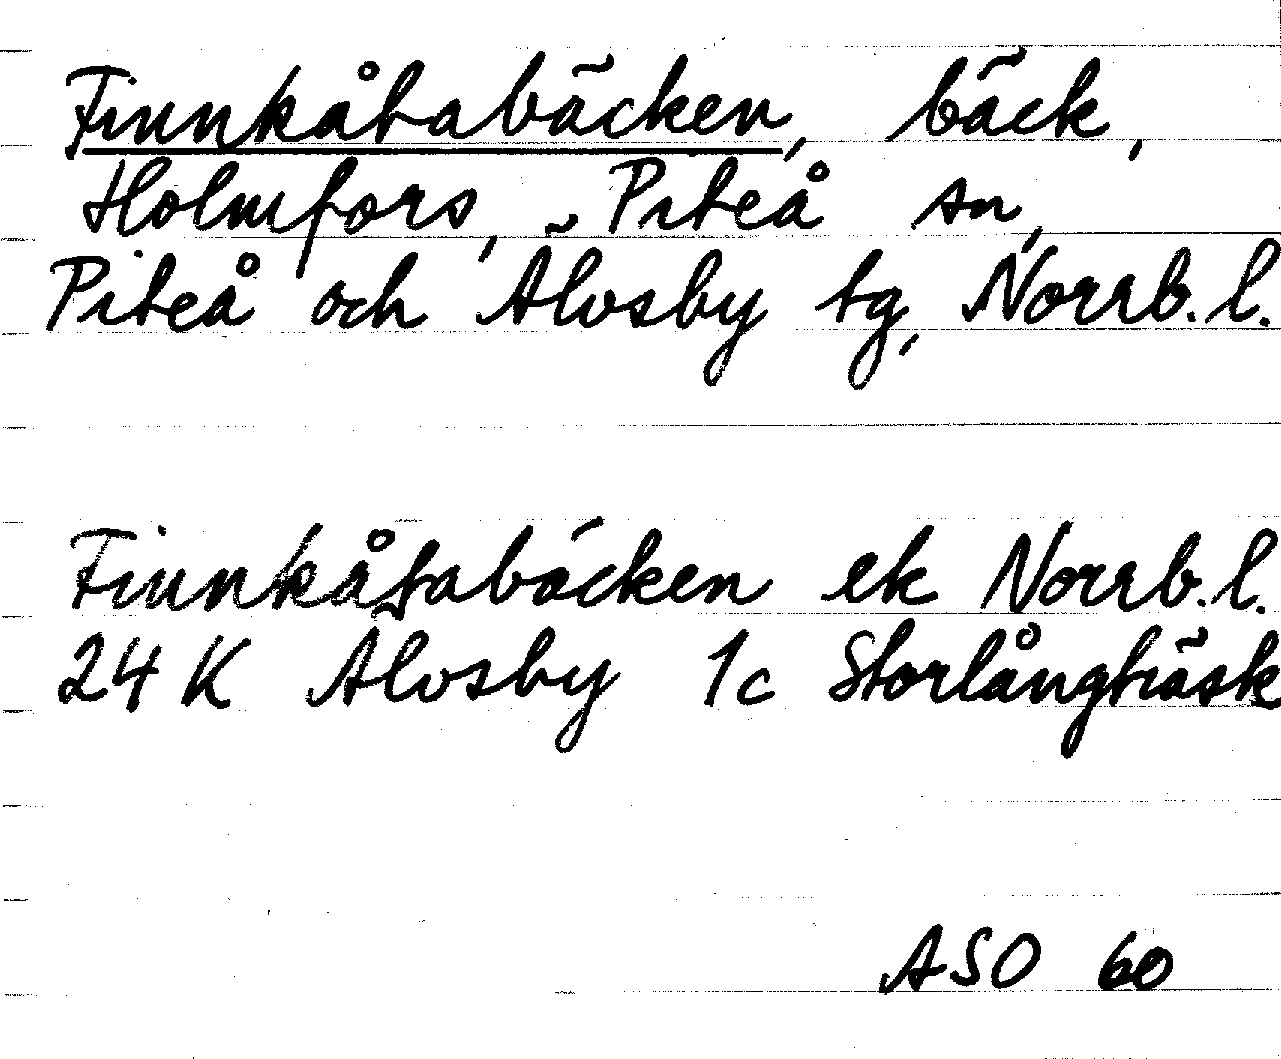 Finnkåtabäcken, bäck,
Holmfors, Piteå sn,
Piteå och Älvsby tg, Norrb. l.
Finnkåtabäcken ek Norrb. l.
24 K Älvsby 1c Storlångträsk
ASO 60